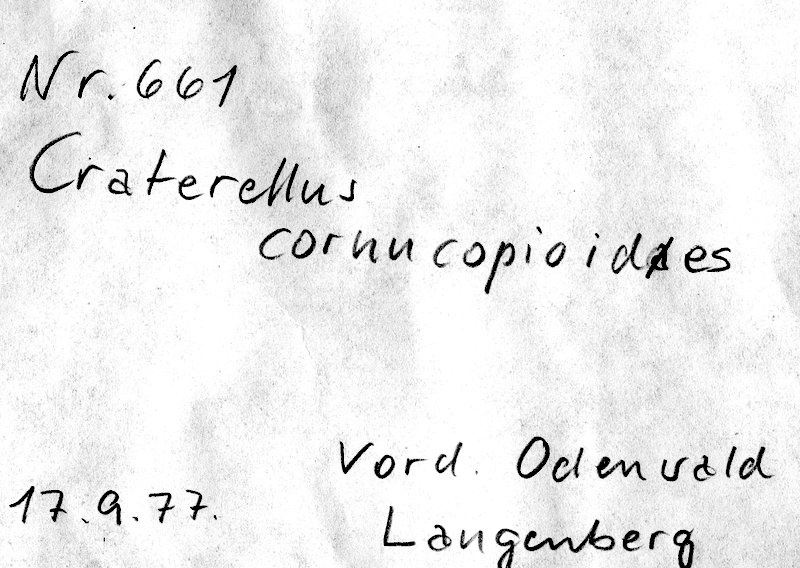 Nr. 661
Craterellus
cornucopioides
Vord. Odenwald
17.9.77.
Langenberg